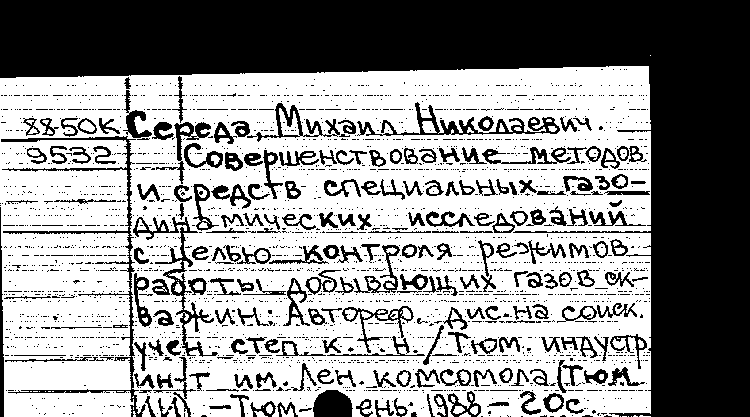 88-50К Середа, Михаил Николаевич.
9532 Совершенствование методов
и средств специальных газо-
динамических исследований
с целью контроля режимов
работы добывающих газов ск-
важин: Автореф. дис. на соиск.
учен. степ. к.т.н. / Тюм. индустр.
ин-т им. Лен. комсомола (Тюм
ИИ). – Тюм- ень: 1988 – 20с.